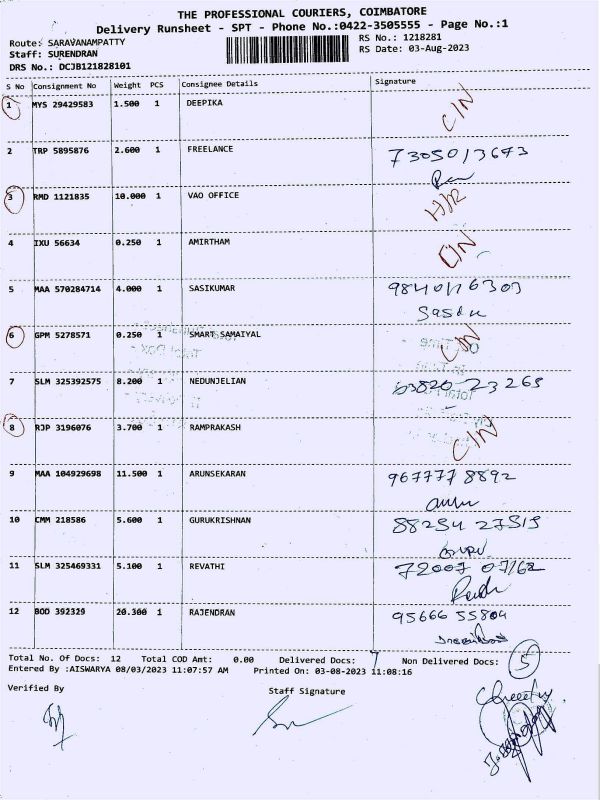 THE PROFESSIONAL COURIERS, COIMBATORE
Delivery Runsheet - SPT - Phone No.:0422-3505555 - Page No.:1
Route: SARAVANAMPATTY
RS No.: 1218281
Staff: SURENDRAN
RS Date: 03-Aug-2023
DRS No.: DCJB121828101
S No Consignment No Weight PCS Consignee Details Signature
1 MYS 29429583 1.500 1 DEEPIKA CIN
2 TRP 5895876 2.600 1 FREELANCE 7305013673
3 RMD 1121835 10.000 1 VAO OFFICE
4 IXU 56634 0.250 1 AMIRTHAM CIN
5 MAA 570284714 4.000 1 SASIKUMAR
6 GPM 5278571 0.250 1 SMART SAMAIYAL CIN
7 SLM 325392575 8.200 1 NEDUNJELIAN 23265
8 RJP 3196076 3.700 1 RAMPRAKASH CIN
9 MAA 104929698 11.500 1 ARUNSEKARAN 967777 8892
10 CMM 218586 5.600 1 GURUKRISHNAN 88254 27515
11 SLM 325469331 5.100 1 REVATHI 72007 07162
12 BOO 392329 20.300 1 RAJENDRAN 95666 55804
Total No. Of Docs: 12 Total COD Amt: 0.00 Delivered Docs: 7 Non Delivered Docs: 5
Entered By :AISWARYA 08/03/2023 11:07:57 AM Printed On: 03-08-2023 11:08:16
Verified By Staff Signature